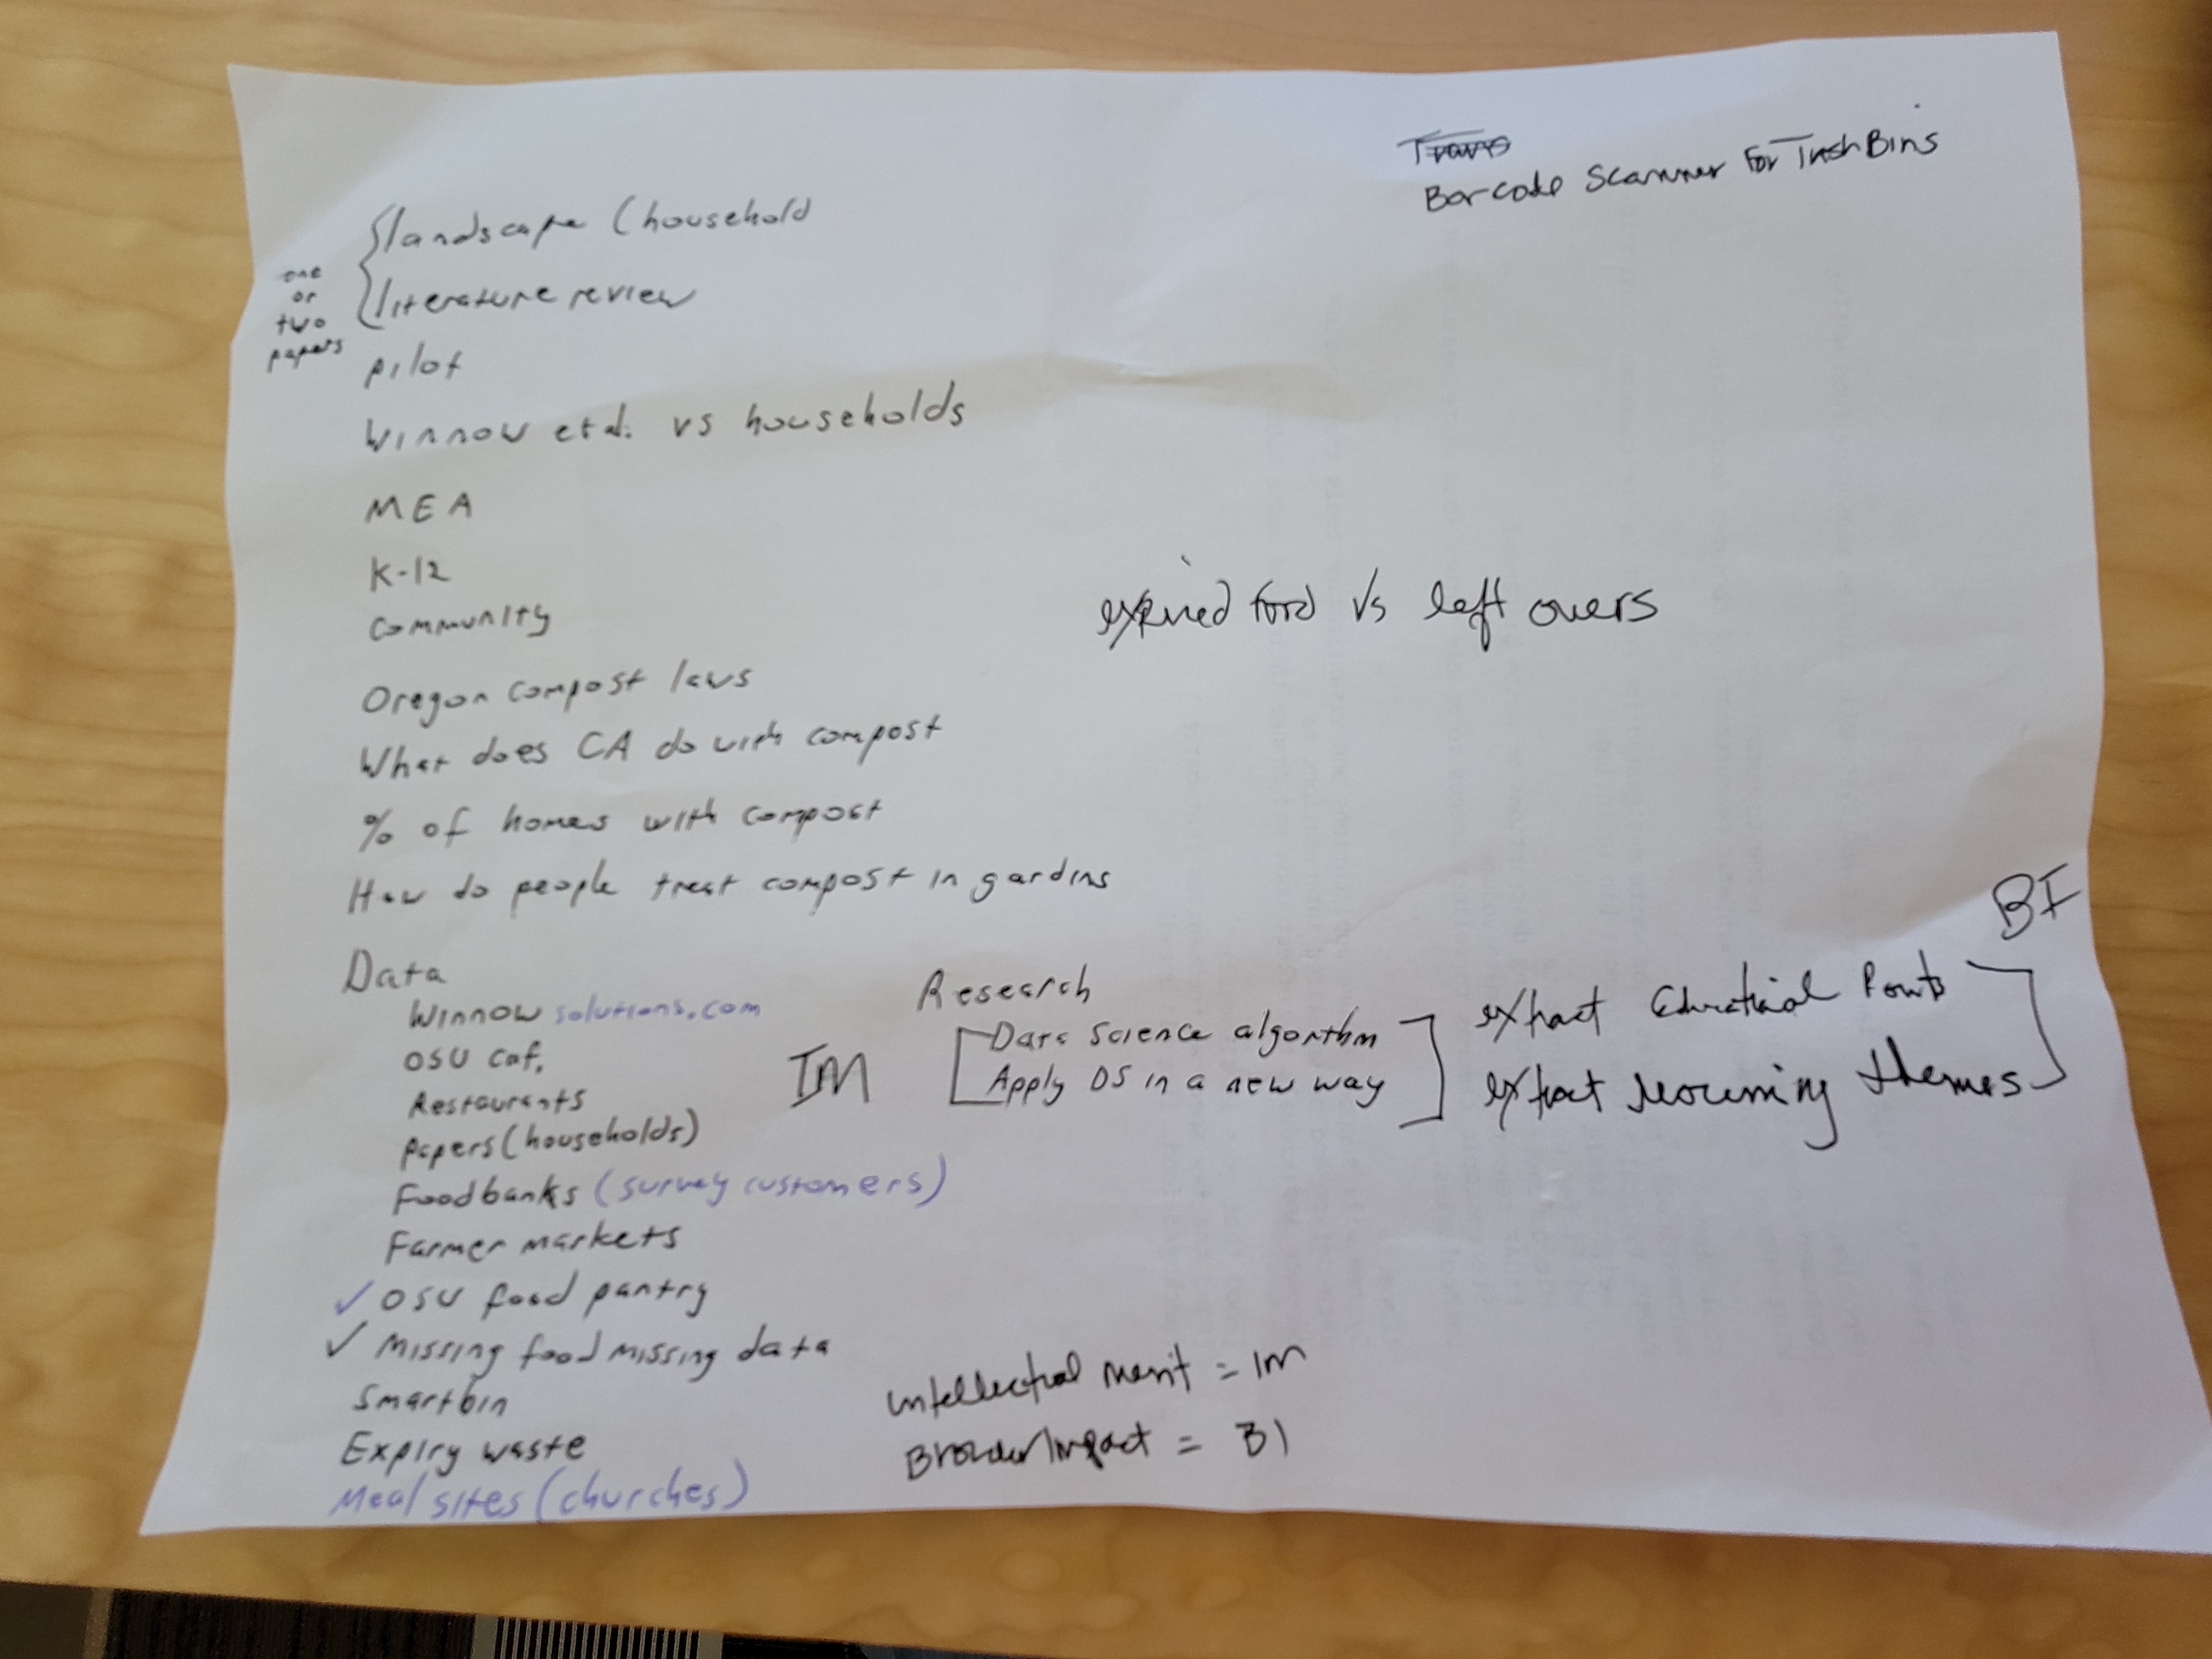 Barcode Scanner For Trash Bins
one
or
two
papers
landscape (household
literature review
pilot
Winnow et al. vs households
MEA
K-12
Community
expired food vs left overs
Oregon compost laws
What does CA do with compost
% of homes with compost
How do people treat compost in gardins
Data
Winnow solutions.com
OSU caf.
Restaurants
Papers (households)
Foodbanks (survey customers)
Farmer markets
✓ OSU food pantry
✓ Missing food missing data
Smartbin
Expiry waste
Meal sites (churches)
IM
Research
Data Science algorithm
Apply DS in a new way
extract Educational Points
extract recurring themes
BI
Intellectual Merit = IM
Broader Impact = BI